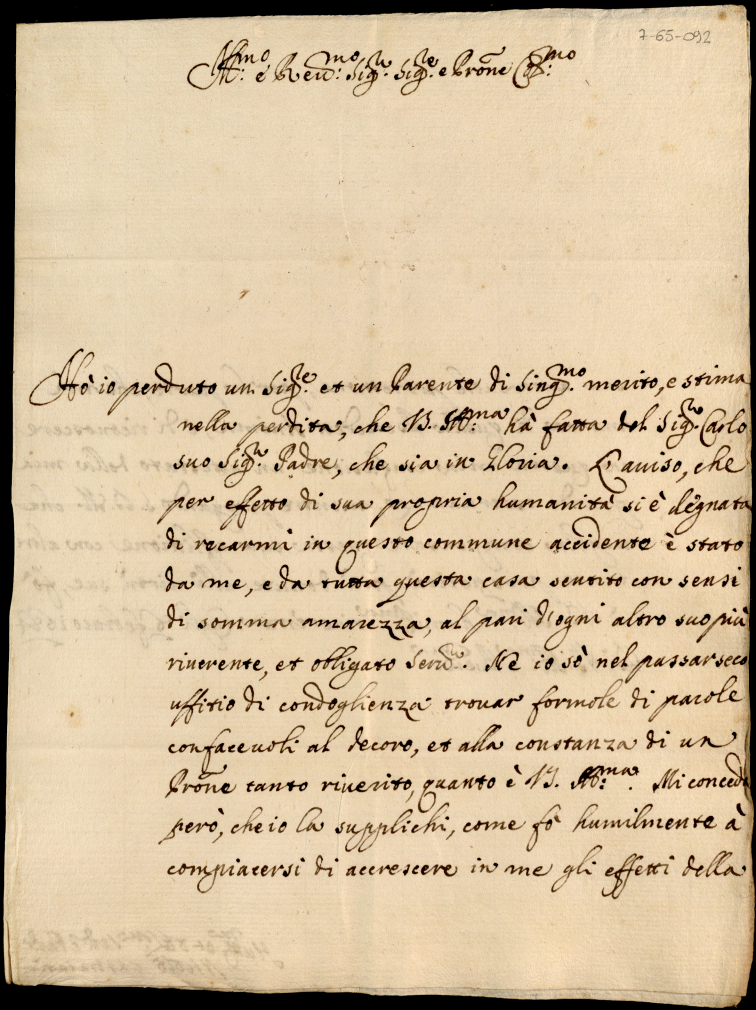 7-65-092
Ill.mo e Reu.mo Sig.r Sig.re e Prone Col.mo
Hò io perduto un Sig.re et un Parente di Sing.mo merito, e stima
nella perdita, che V. S. Ill.ma hà fatta del Sig.r Carlo
suo Sig.r Padre, che sia in Gloria. L'auiso, che
per effetto di sua propria humanità si è degnata
di recarmi in questo commune accidente è stato
da me, e da tutta questa casa sentito con sensi
di somma amarezza, al pari d'ogni altro suo più
riuerente, et obligato Seru.re. Ne io sò nel passar seco
uffitio di condoglienza trouar formole di parole
confaceuoli al decoro, et alla constanza di un
Prone tanto riuerito, quanto è V. S. Ill.ma. Mi conceda
però, che io la supplichi, come fò humilmente à
compiacersi di accrescere in me gli effetti della